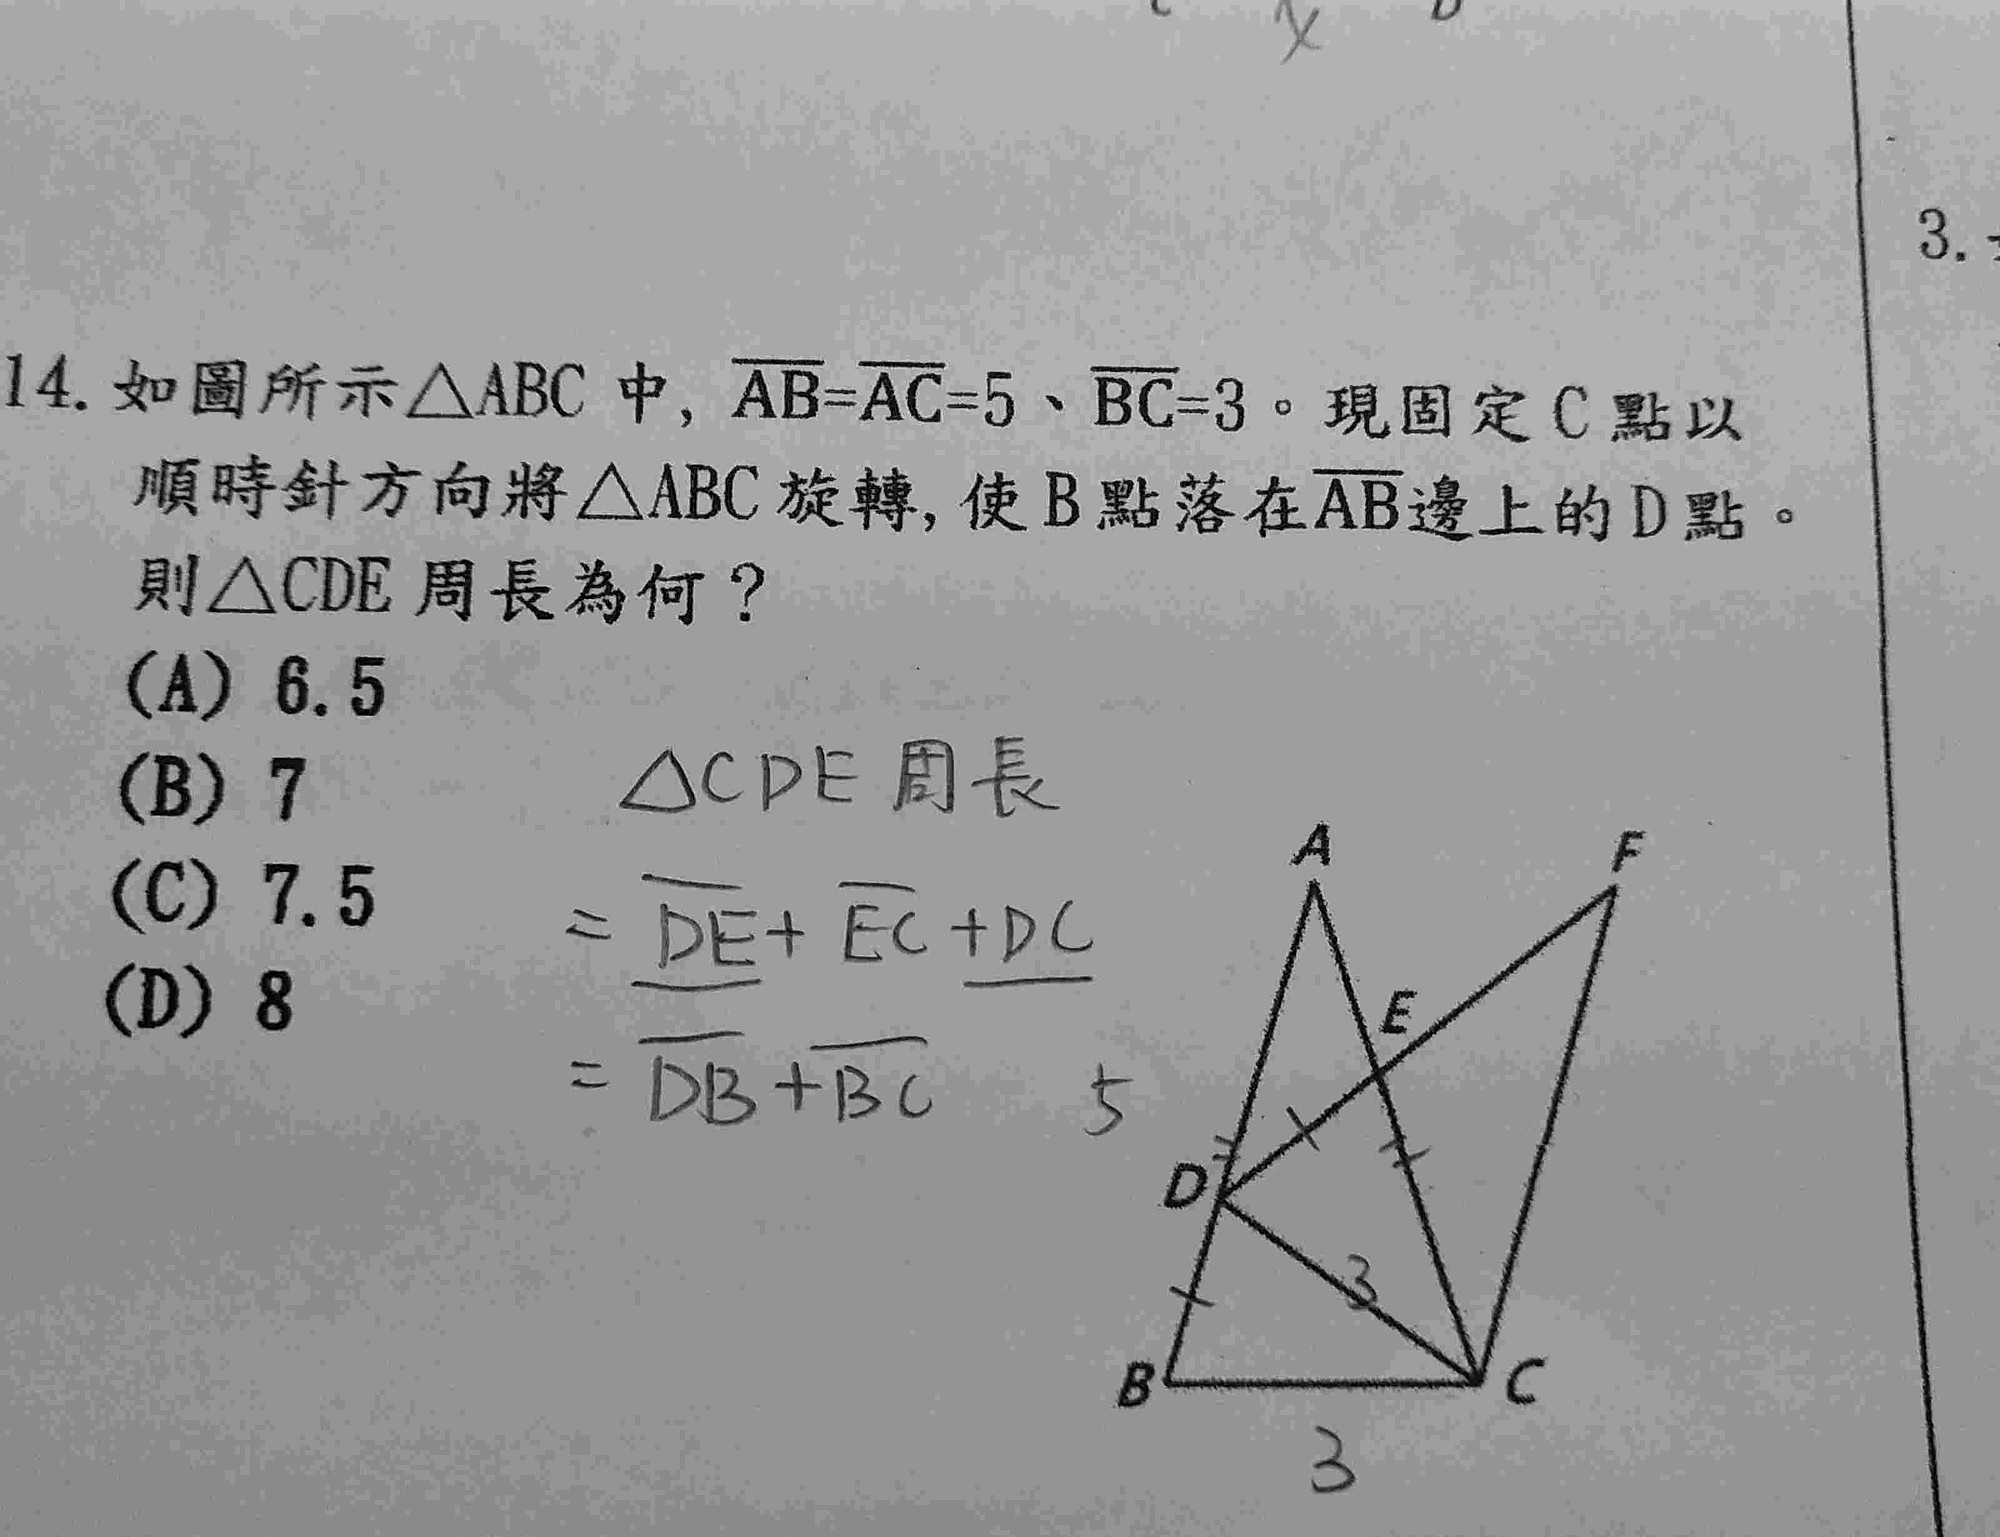 3.
14. 如圖所示△ABC 中, AB=AC=5、BC=3。現固定C點以
順時針方向將△ABC旋轉, 使B點落在AB邊上的D點。
則△CDE周長為何?
(A) 6.5
(B) 7
(C) 7.5
(D) 8
△CDE 周長
= DE + EC + DC
= DB + BC
5
A
F
E
D
3
B
C
3